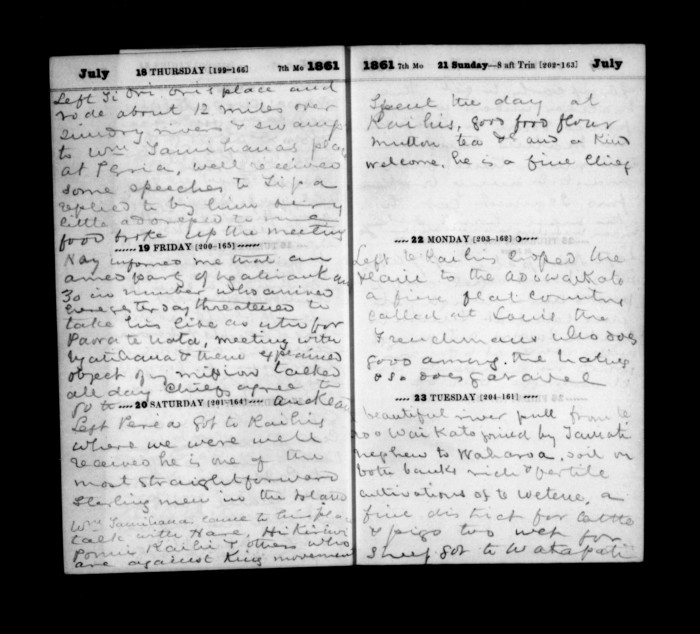 July 18 THURSDAY [199-166] 7th Mo 1861
Left Ti Ori Ori's place and
rode about 12 miles over
sundry rivers & swamps
to Wm Tamihanas place
at Peria, well received
some speeches to
replied to by him very
little addressed to me
food broke up the meeting
19 FRIDAY [200-165]
Nay informed me that an
armed party of
30 in number who arrived
yesterday threatened to
take his life as utu for
Paora te uata, meeting with
Ngatihaua & there explained
object of my mission talked
all day Chiefs agree to
go to Auckland
20 SATURDAY [201-164]
Left Peria got to Raihis
where we were well
received he is one of the
most straightforward
sterling men in the Island
Wm Tamihana came to this place
talk with Hare,
Raihi & others who
are against King movement
1861 7th Mo 21 Sunday—8 aft Trin [202-163] July
Spent the day at
Raihis, good food flour
mutton tea & and a kind
welcome, he is a fine Chief
22 MONDAY [203-162]
Left Raihis & the
to the Waikato
a fine flat country
called at Louis the
Frenchmans who does
good among the natives
so does
23 TUESDAY [204-161]
beautiful river pull from
Waikato joined by Tamati
nephew to Waharoa, soil on
both banks rich & fertile
cultivations of to Wetere, a
fine district for cattle
& pigs too wet for
sheep got to